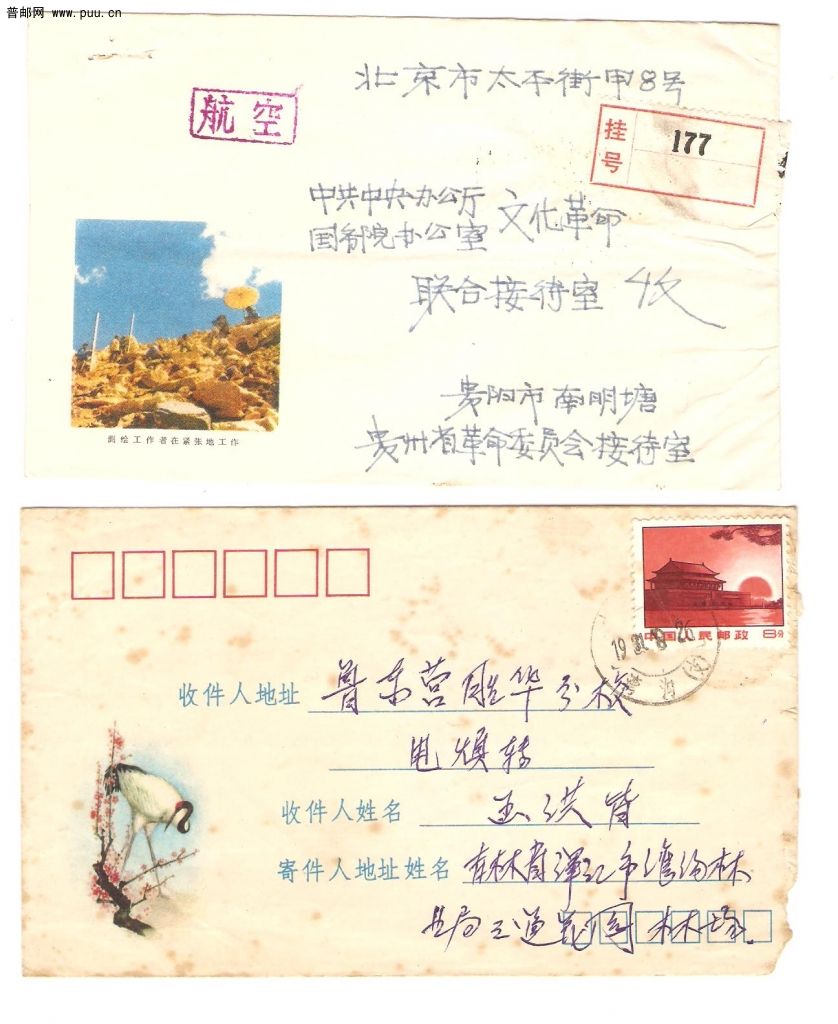 普邮网 www.puu.cn
北京市太平街甲8号
航空
挂号
177
中共中央办公厅
国务院办公室
文化革命
联合接待室 收
贵阳市南明塘
贵州省革命委员会接待室
测绘工作者在紧张地工作
中国人民邮政 8分
19 26
收件人地址 东营胜华分校
转
收件人姓名 洪
寄件人地址姓名 吉林省浑江市湾沟林
业局三道 林场